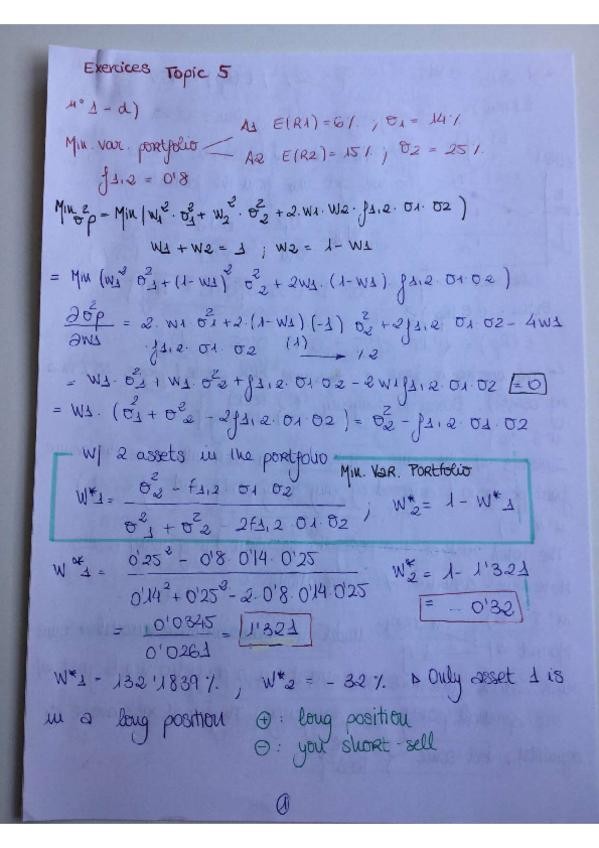 Exercices Topic 5
nº 1 - d)
A1 E(R1) = 6% ; σ1 = 14%
Min. var. portfolio
A2 E(R2) = 15% ; σ2 = 25%
ρ1,2 = 0'8
Min σ²p = Min (w1² · σ1² + w2² · σ2² + 2 · w1 · w2 · ρ1,2 · σ1 · σ2)
w1 + w2 = 1 ; w2 = 1 - w1
= Min (w1² σ1² + (1-w1)² σ2² + 2w1 · (1-w1) ρ1,2 σ1 σ2)
∂σ²p / ∂w1 = 2 · w1 σ1² + 2 · (1-w1) (-1) σ2² + 2ρ1,2 σ1 σ2 - 4w1
· ρ1,2 · σ1 · σ2 (1) → /2
= w1 · σ1² + w1 σ2² + ρ1,2 · σ1 · σ2 - 2w1ρ1,2 · σ1 · σ2 = 0
= w1 · (σ1² + σ2² - 2ρ1,2 · σ1 σ2) = σ2² - ρ1,2 · σ1 · σ2
w/ 2 assets in the portfolio
Min. Var. Portfolio
w*1 = (σ2² - ρ1,2 σ1 σ2) / (σ1² + σ2² - 2ρ1,2 σ1 σ2) ; w*2 = 1 - w*1
w*1 = (0'25² - 0'8 · 0'14 · 0'25) / (0'14² + 0'25² - 2 · 0'8 · 0'14 · 0'25) w*2 = 1 - 1'321
= 0'0345 / 0'0261 = 1'321 = - 0'32
w*1 - 132'1839% , w*2 = - 32% ▷ Only asset 1 is
in a long position ⊕ : long position
⊖ : you short-sell
1